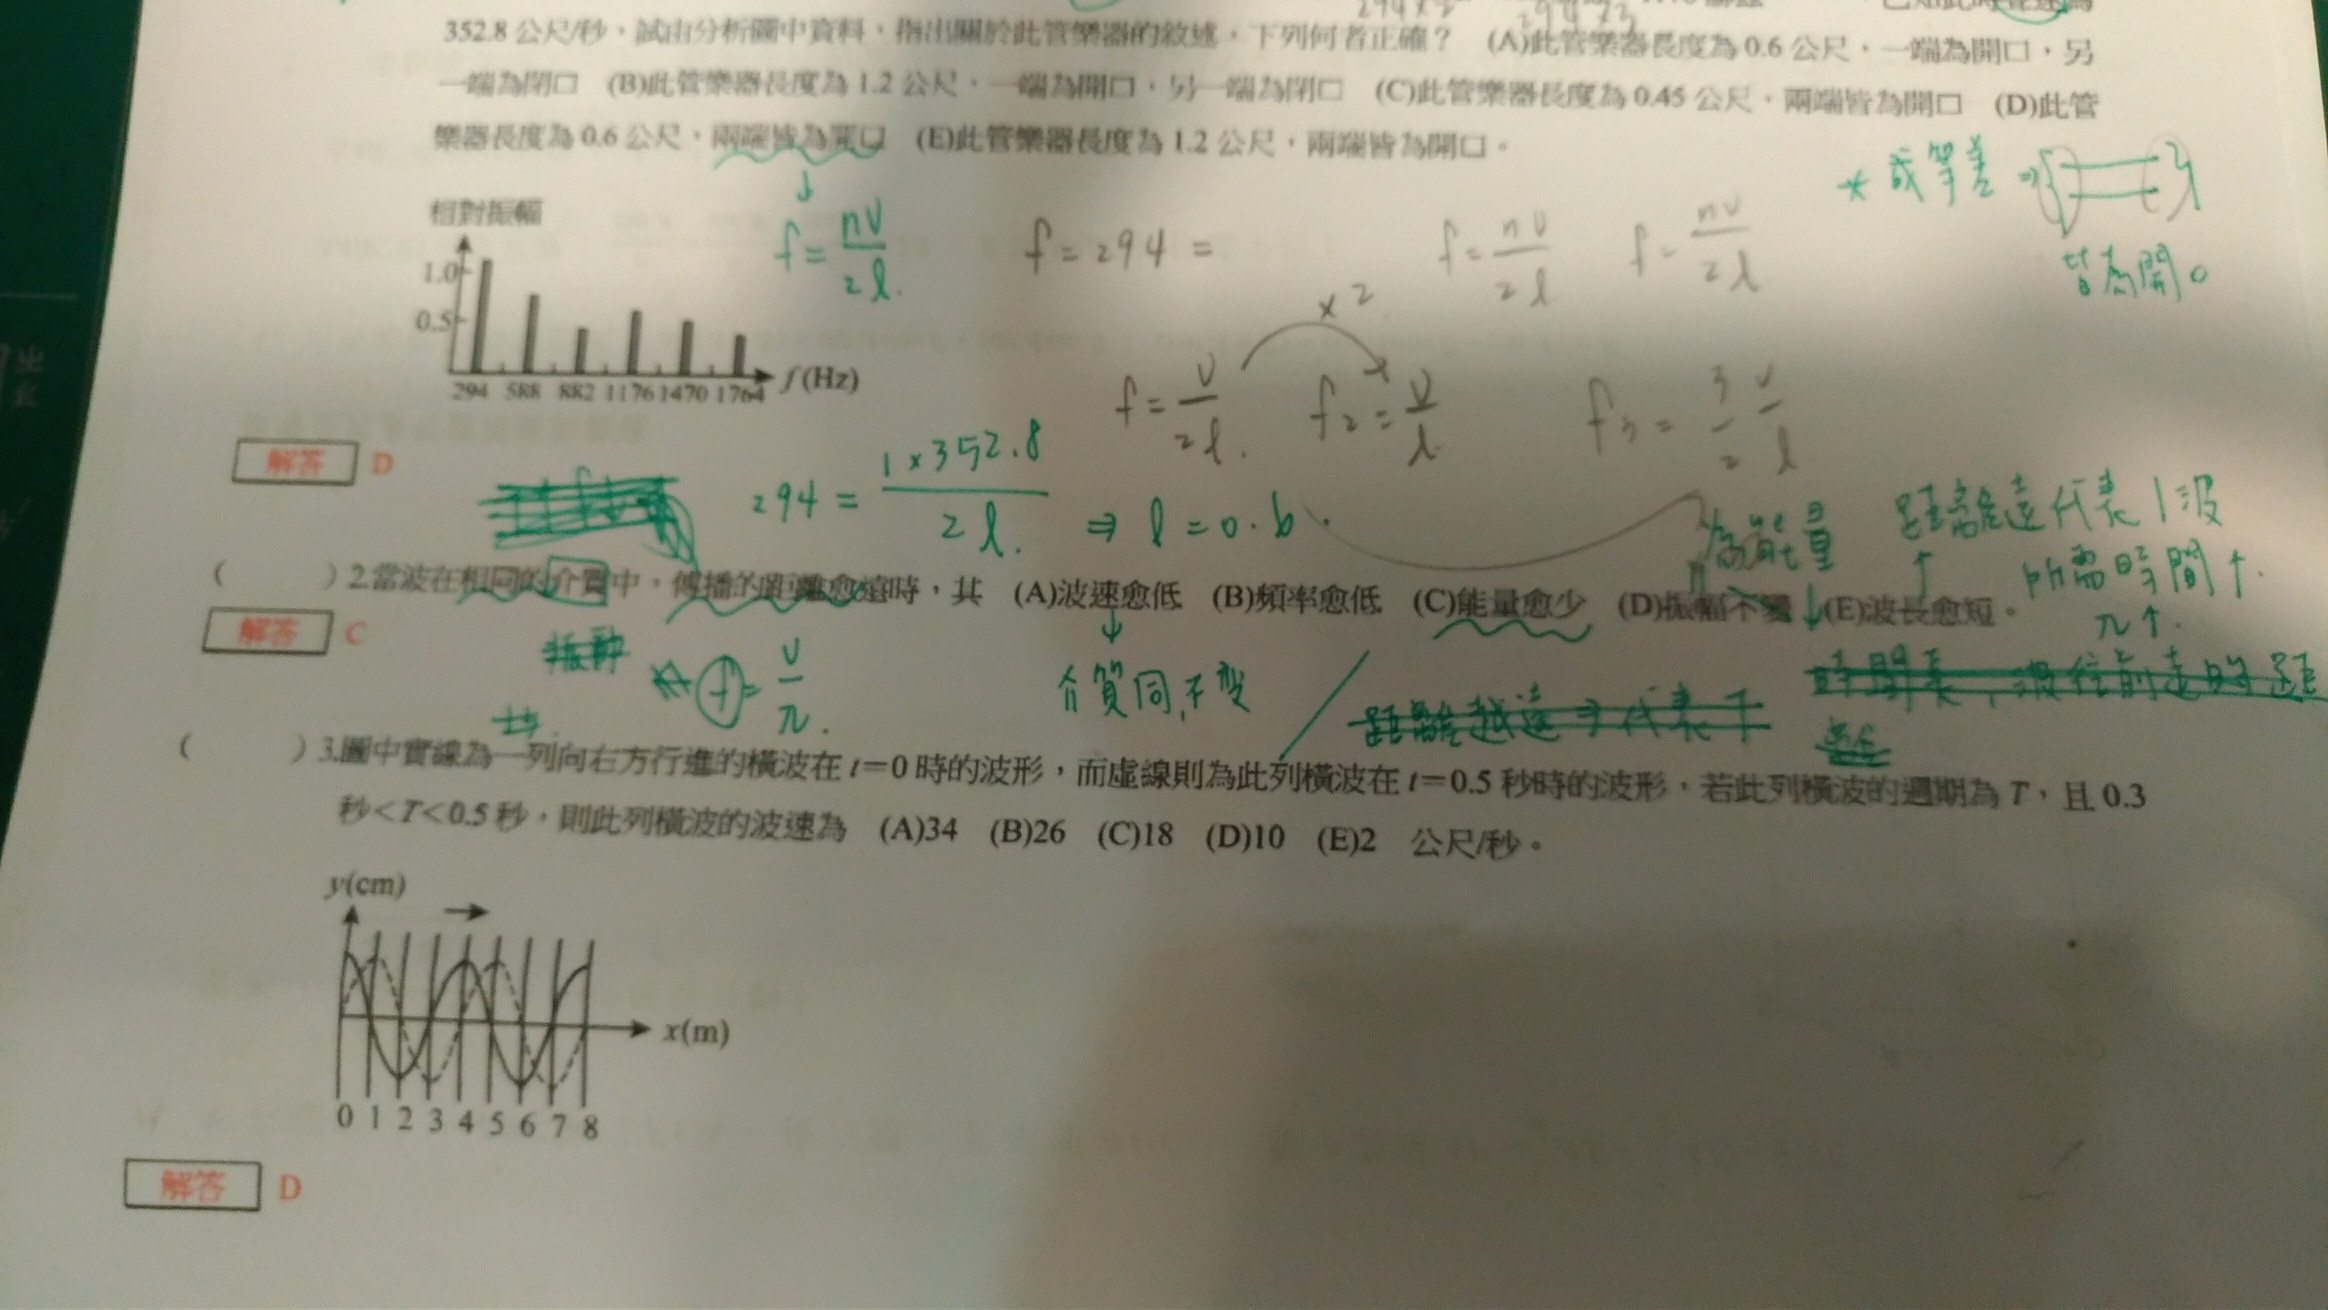 352.8 公尺/秒，試由分析圖中資料，指出關於此管樂器的敘述，下列何者正確？ (A)此管樂器長度為 0.6 公尺，一端為開口，另
一端為閉口 (B)此管樂器長度為 1.2 公尺，一端為開口，另一端為閉口 (C)此管樂器長度為 0.45 公尺，兩端皆為開口 (D)此管
樂器長度為 0.6 公尺，兩端皆為開口 (E)此管樂器長度為 1.2 公尺，兩端皆為開口。
* 成等差 ⇒
皆為開。
相對振幅
1.0
0.5
294 588 882 1176 1470 1764 f(Hz)
f = nv/2l.
f = 294 =
f = nv/2l
f = nv/2l
×2
f = v/2l.
f2 = v/l
f3 = 3/2 v/l
解答 D
294 = 1×352.8/2l. ⇒ l = 0.6.
為能量
距離遠代表1波
所需時間↑.
( )2.當波在相同的介質中，傳播的距離愈遠時，其 (A)波速愈低 (B)頻率愈低 (C)能量愈少 (D)振幅不變 (E)波長愈短。
解答 C
f = v/λ.
介質同,不变
λ↑.
( )3.圖中實線為一列向右方行進的橫波在 t＝0 時的波形，而虛線則為此列橫波在 t＝0.5 秒時的波形，若此列橫波的週期為 T，且 0.3
秒＜T＜0.5 秒，則此列橫波的波速為 (A)34 (B)26 (C)18 (D)10 (E)2 公尺/秒。
y(cm)
x(m)
0 1 2 3 4 5 6 7 8
解答 D